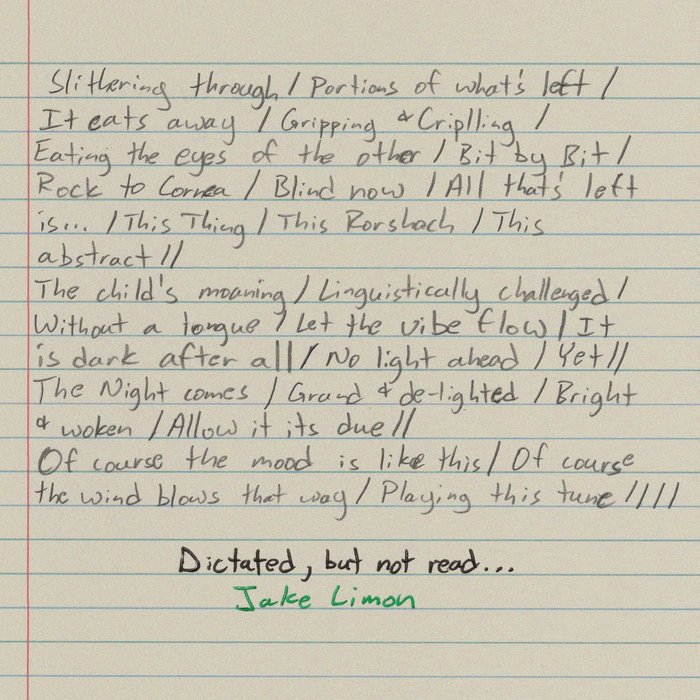 Slithering through / Portions of what's left /
It eats away / Gripping & Criplling /
Eating the eyes of the other / Bit by Bit /
Rock to Cornea / Blind now / All that's left
is... / This Thing / This Rorshach / This
abstract //
The child's moaning / Linguistically challenged /
Without a tongue / Let the vibe flow / It
is dark after all / No light ahead / Yet //
The Night comes / Grand & de-lighted / Bright
& woken / Allow it its due //
Of course the mood is like this / Of course
the wind blows that way / Playing this tune ////
Dictated, but not read...
Jake Limon